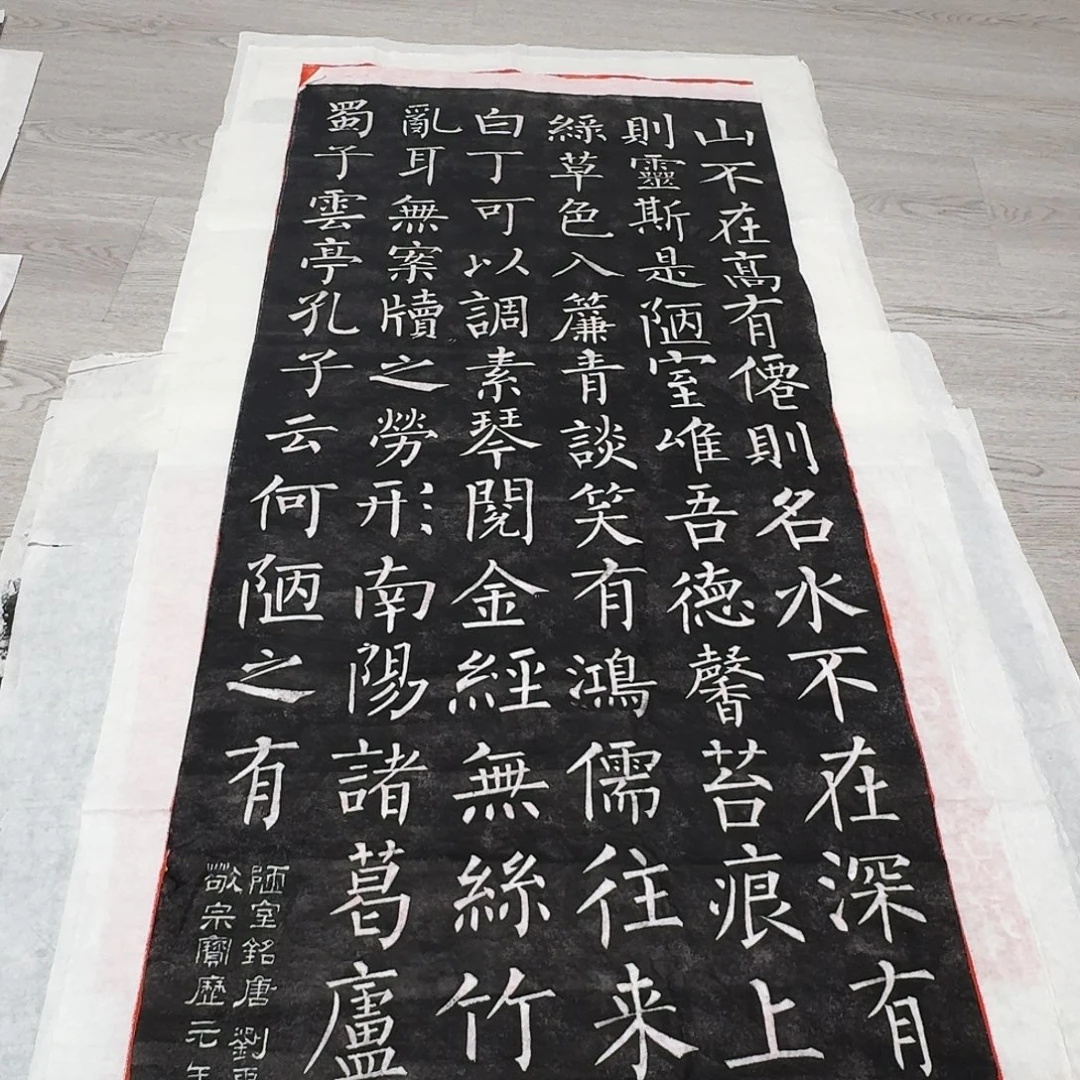 山不在高有僊則名水不在深有
則靈斯是陋室唯吾德馨苔痕上
綠草色入簾青談笑有鴻儒往来
白丁可以調素琴閱金經無絲竹
亂耳無案牘之勞形南陽諸葛廬
蜀子雲亭孔子云何陋之有
陋室銘唐劉
敬宗寶歷元年